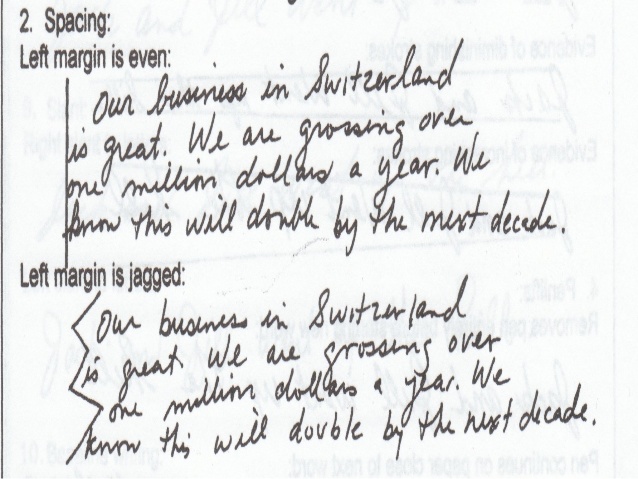 2. Spacing:
Left margin is even:
Our business in Switzerland
is great. We are grossing over
one million dollars a year. We
know this will double by the next decade.
Left margin is jagged:
Our business in Switzerland
is great. We are grossing over
one million dollars a year. We
know this will double by the next decade.